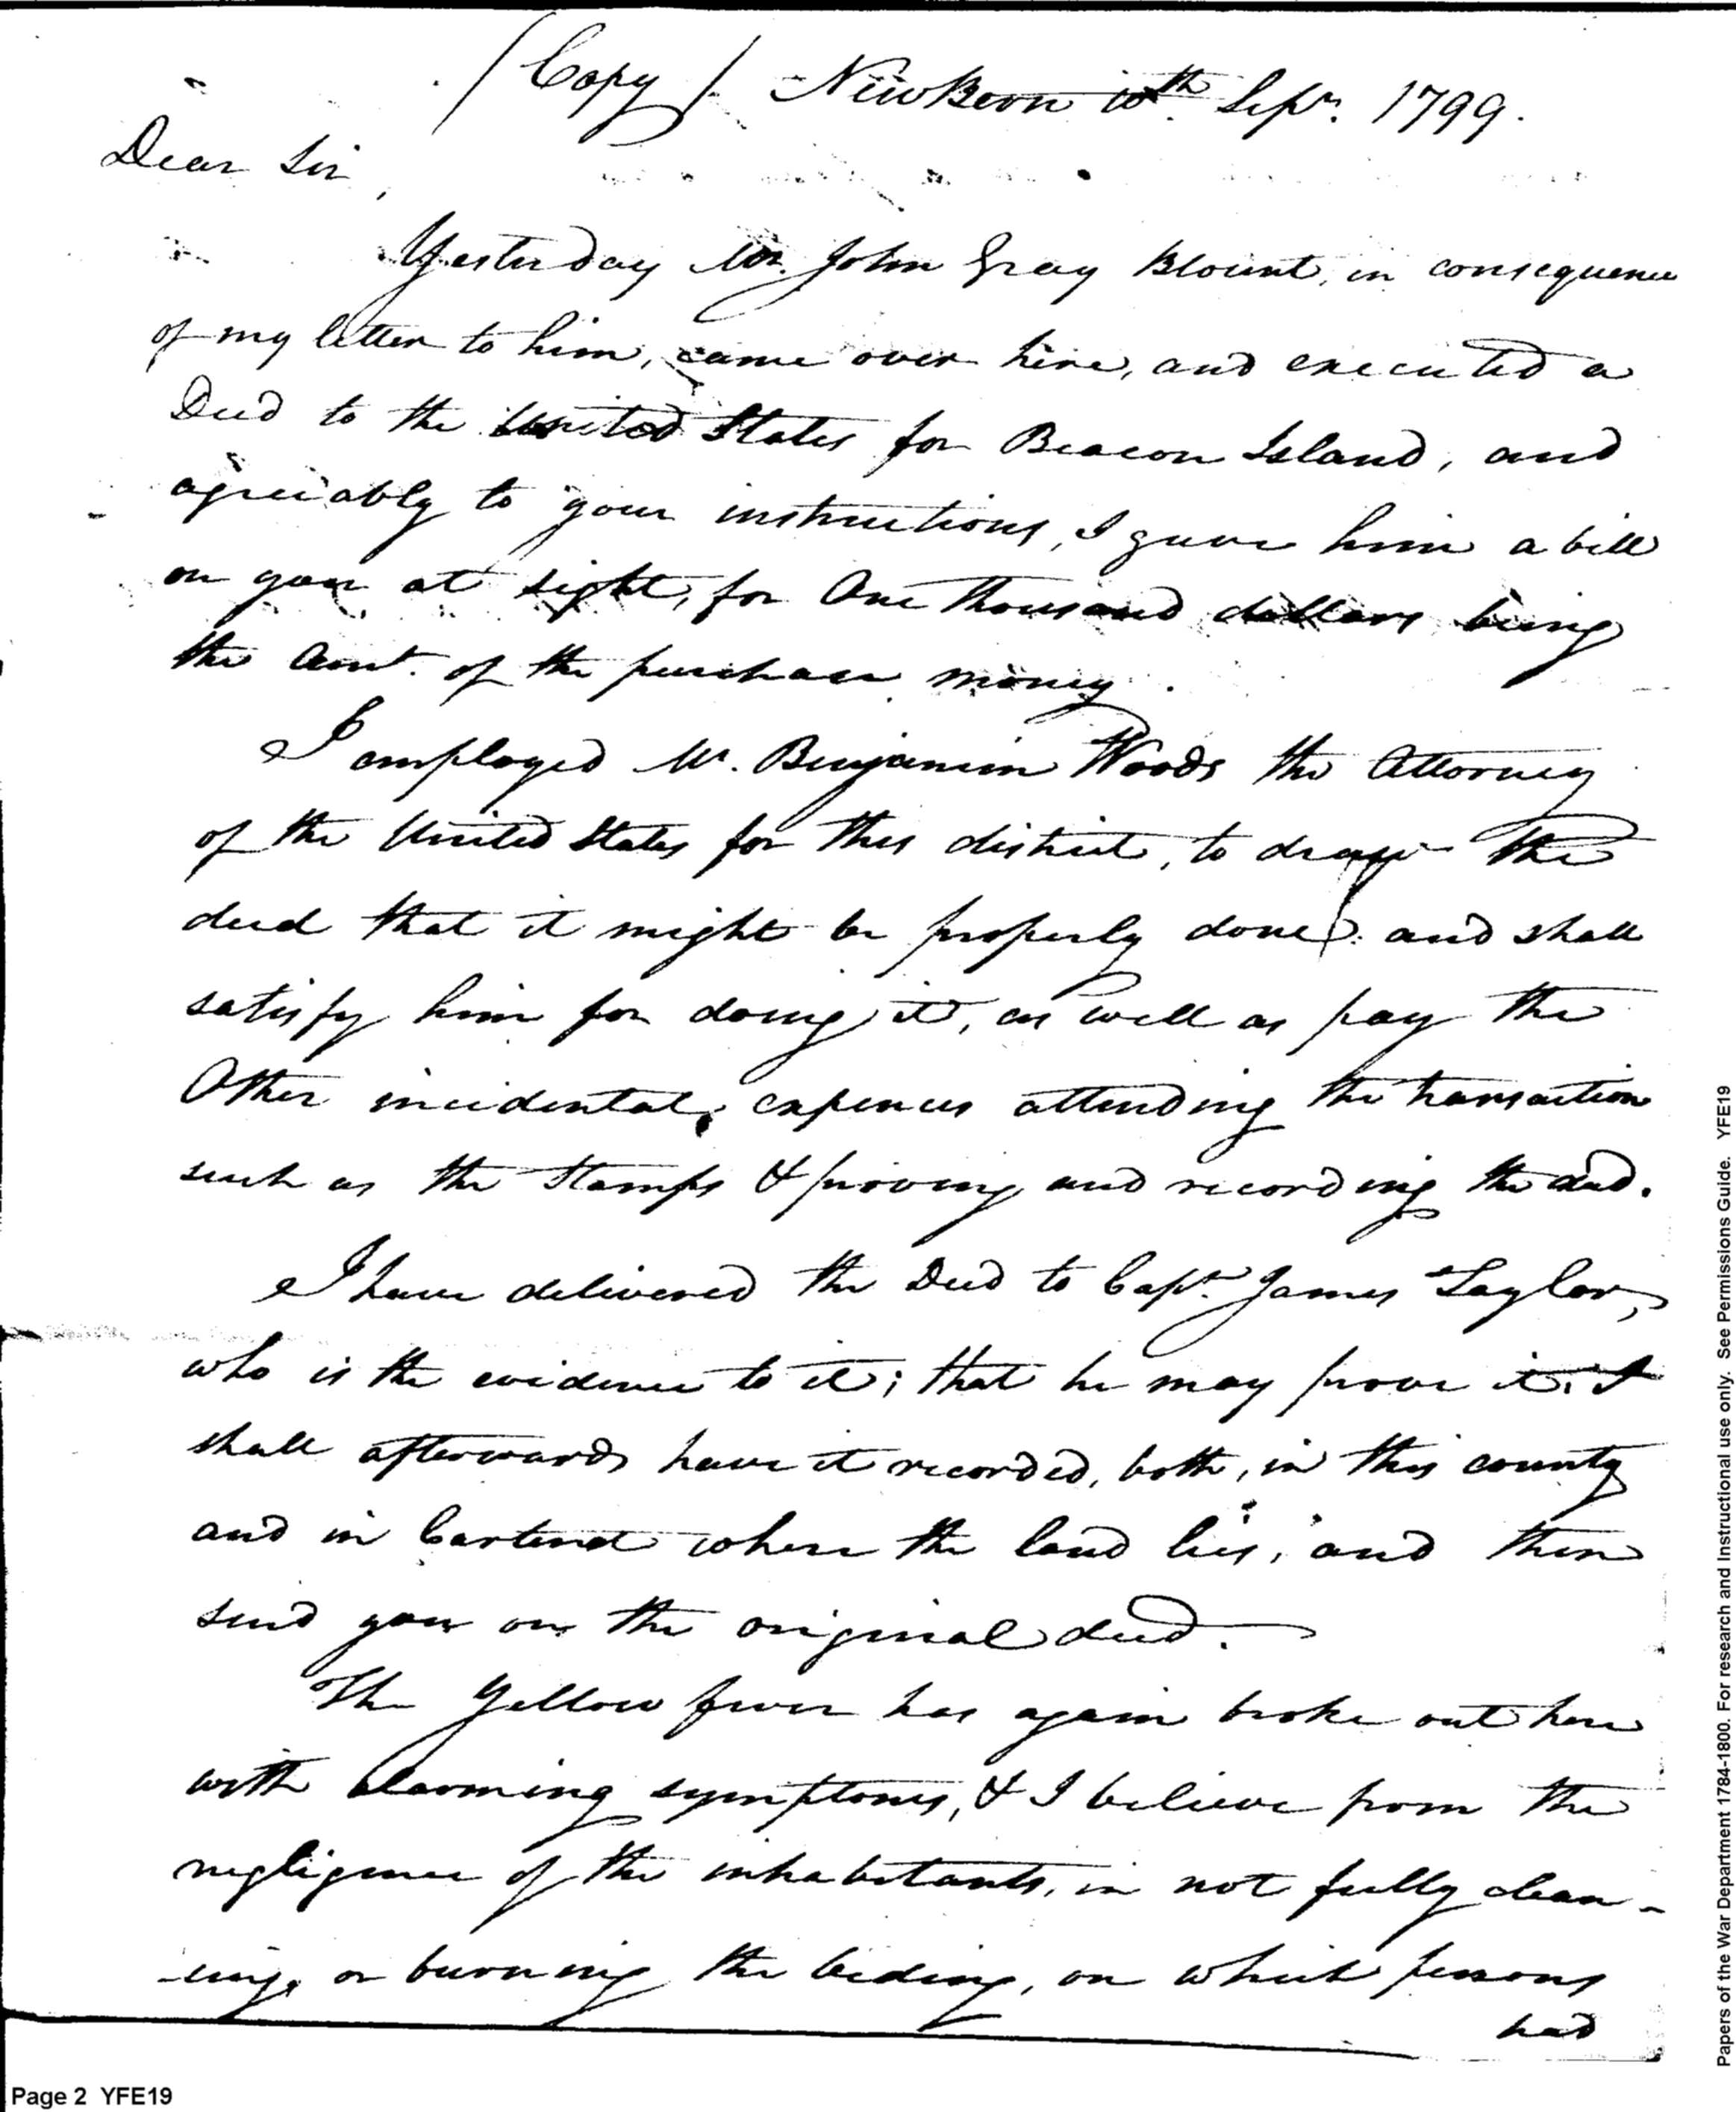 (Copy) NewBern 10th. Sepr. 1799.
Dear Sir,
Yesterday Mr. John Gray Blount, in consequence
of my letter to him, came over here, and executed a
Deed to the United States for Beacon Island, and
agreeably to your instructions, I gave him a bill
on you at sight, for One thousand dollars being
the Amt. of the purchase money.
I employed Mr. Benjamin Woods the Attorney
of the United States for this district, to draw the
deed that it might be properly done: and shall
satisfy him for doing it, as well as pay the
Other incidental, expences attending the transaction
such as the Stamps & proving and recording the deed.
I have delivered the Deed to Capt. James Taylor,
who is the evidence to it; that he may prove it. I
shall afterwards have it recorded, both, in this county
and in Carteret where the land lies, and then
send you on the original deed.
The Yellow fever has again broke out here
with alarming symptoms, & I believe from the
negligence of the inhabitants, in not fully clean-
-ing, or burning the beding, on which persons
had
Page 2 YFE19
Papers of the War Department 1784-1800. For research and Instructional use only. See Permissions Guide. YFE19